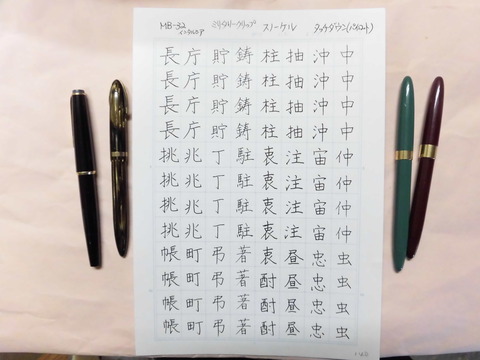 MB-32
ミリタリークリップ
スノーケル
インタルシア
中中中中仲仲仲仲虫虫虫虫
沖沖沖沖宙宙宙宙忠忠忠忠
抽抽抽抽注注注注昼昼昼昼
柱柱柱柱衷衷衷衷衷酎酎酎
鋳鋳鋳鋳駐駐駐駐著著著著
貯貯貯貯丁丁丁丁弔弔弔弔
庁庁庁庁兆兆兆兆町町町町
長長長長挑挑挑挑帳帳帳帳